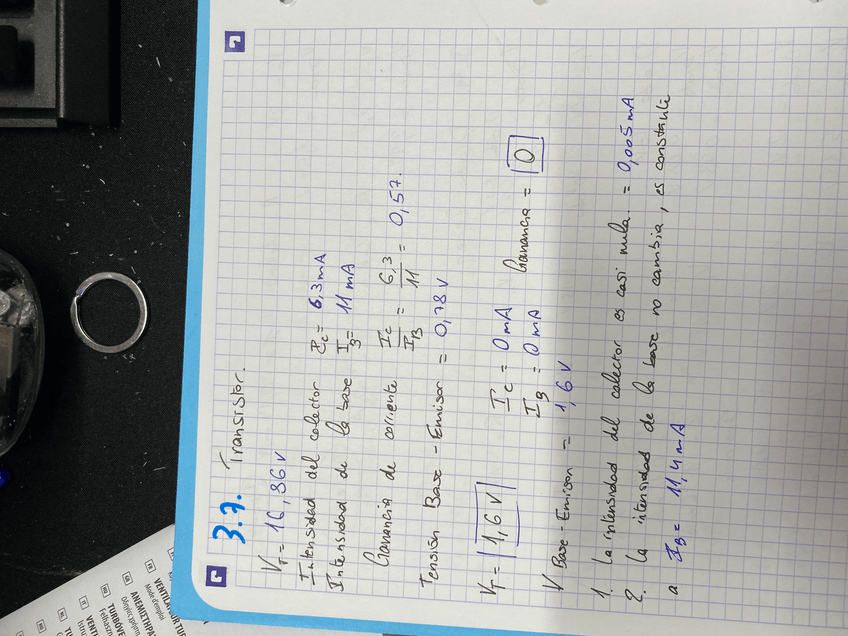 3.7. Transistor.
VT = 16,86 V
Intensidad del colector Ic = 6,3 mA
Intensidad de la base IB = 11 mA
Ganancia de corriente Ic/IB = 6,3/11 = 0,57.
Tensión Base - Emisor = 0,78 V
VT = 1,6 V
Ic = 0 mA
IB = 0 mA Ganancia = 0
V Base-Emisor = 1,6 V
1. la intensidad del colector es casi nula = 0,005 mA
2. la intensidad de la base no cambia, es constante
a IB = 11,4 mA
VENTILATEUR TUR
Mode d'emploi
ΑΝΕΜΙΣΤΗΡΑ
TURBOVE